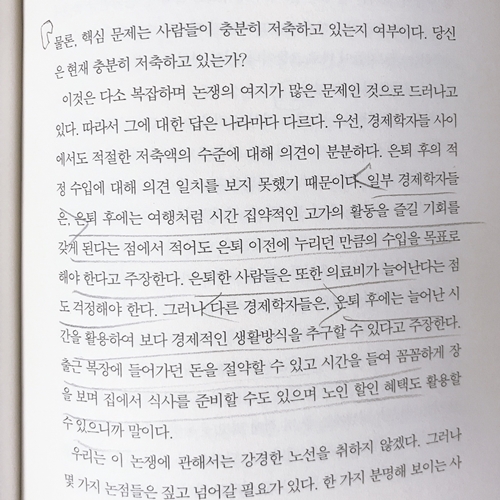 물론, 핵심 문제는 사람들이 충분히 저축하고 있는지 여부이다. 당신
은 현재 충분히 저축하고 있는가?
이것은 다소 복잡하며 논쟁의 여지가 많은 문제인 것으로 드러나고
있다. 따라서 그에 대한 답은 나라마다 다르다. 우선, 경제학자들 사이
에서도 적절한 저축액의 수준에 대해 의견이 분분하다. 은퇴 후의 적
정 수입에 대해 의견 일치를 보지 못했기 때문이다. 일부 경제학자들
은, 은퇴 후에는 여행처럼 시간 집약적인 고가의 활동을 즐길 기회를
갖게 된다는 점에서 적어도 은퇴 이전에 누리던 만큼의 수입을 목표로
해야 한다고 주장한다. 은퇴한 사람들은 또한 의료비가 늘어난다는 점
도 걱정해야 한다. 그러나 다른 경제학자들은, 은퇴 후에는 늘어난 시
간을 활용하여 보다 경제적인 생활방식을 추구할 수 있다고 주장한다.
출근 복장에 들어가던 돈을 절약할 수 있고 시간을 들여 꼼꼼하게 장
을 보며 집에서 식사를 준비할 수도 있으며 노인 할인 혜택도 활용할
수 있으니까 말이다.
우리는 이 논쟁에 관해서는 강경한 노선을 취하지 않겠다. 그러나
몇 가지 논점들은 짚고 넘어갈 필요가 있다. 한 가지 분명해 보이는 사